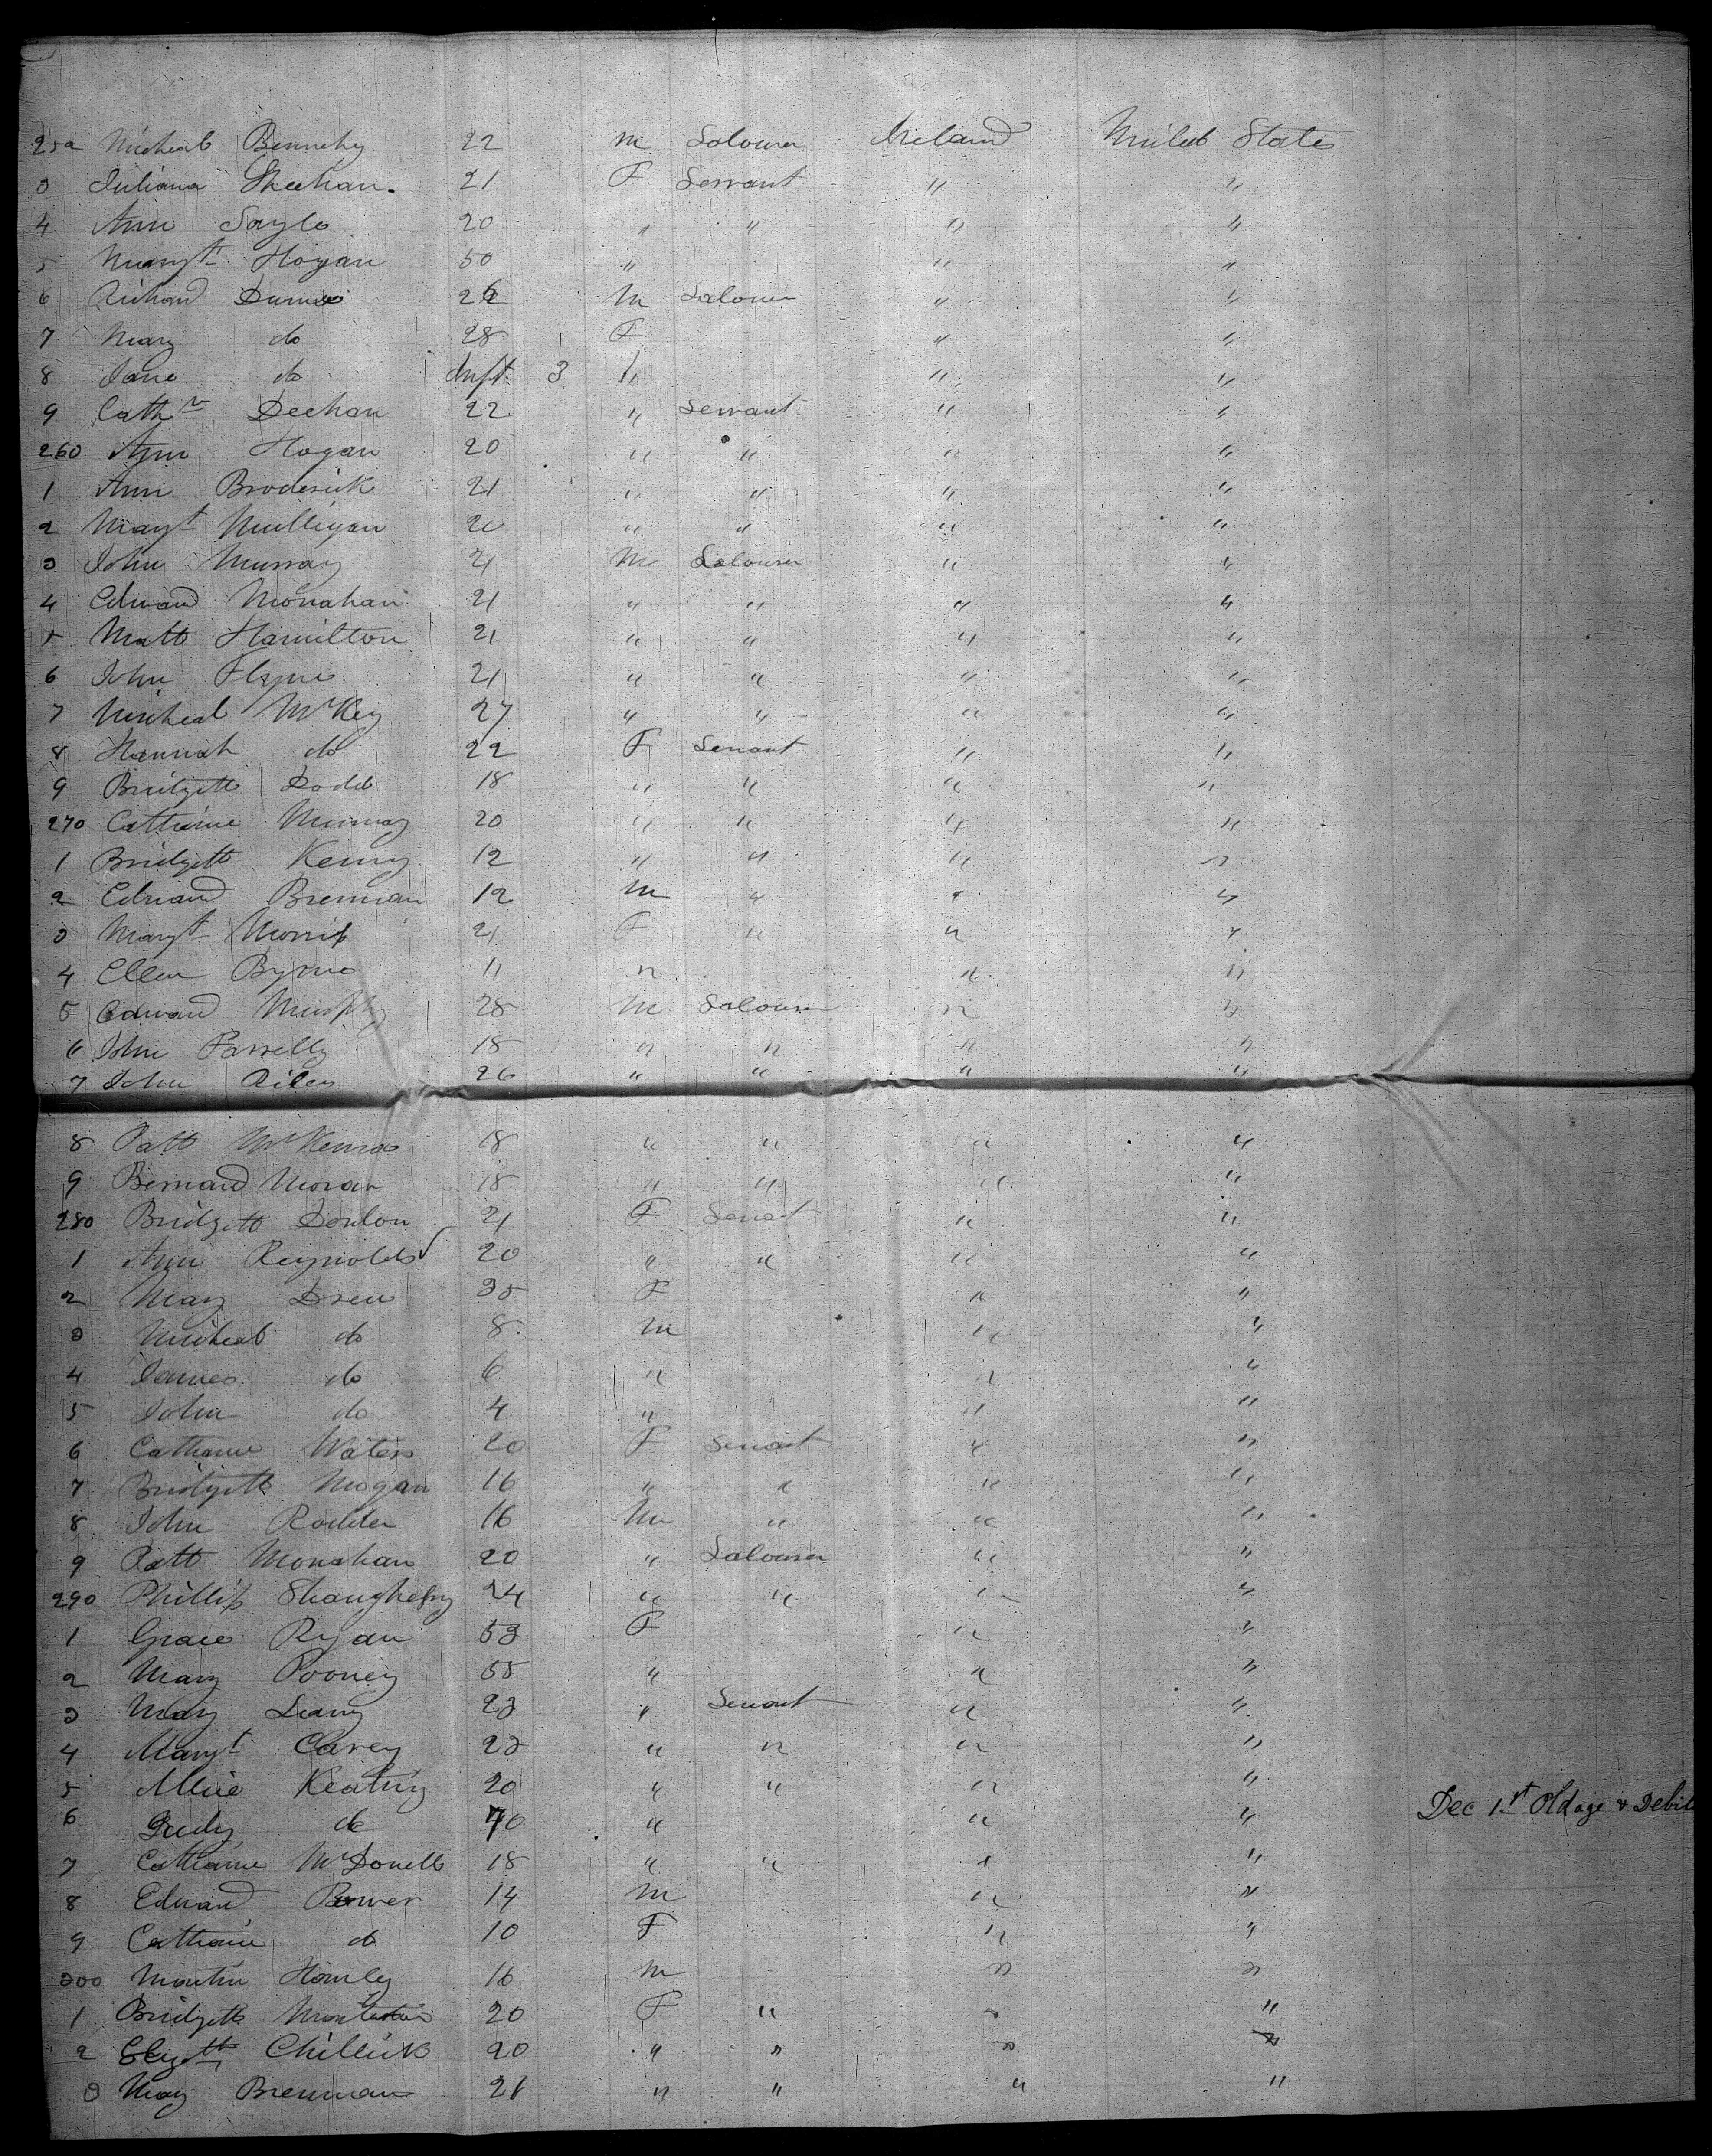 252 Micheal Bennehy 22 M Labourer Ireland United States
3 Juliana Sheehan 21 F Servant " "
4 Ann 20 " " " "
5 Margt Hogan 50 " " "
6 Richard 26 M Labourer " "
7 Mary do 28 F " "
8 Jane do Inft 3 " " "
9 Cathe Deehan 22 " Servant " "
260 Ann Hogan 20 " " " "
1 Ann Broderick 21 " " " "
2 Margt Mulligan 20 " " " "
3 John Murray 21 M Labourer " "
4 Edward Monahan 21 " " " "
5 Matt Hamilton 21 " " " "
6 John Flynn 21 " " " "
7 Micheal McKey 27 " " " "
8 Hannah do 22 F Servant " "
9 Bridgett Dodd 18 " " " "
270 Catharine Murray 20 " " " "
1 Bridgett Kenny 12 " " " "
2 Edward Brennan 12 M " " "
3 Margt Morris 21 F " " "
4 Ellen Byrne 11 " " "
5 Edward Murphy 28 M Labourer " "
6 John Farrelly 18 " " " "
7 John Riley 26 " " " "
8 Patt McKenna 18 " " " "
9 Bernard Moran 18 " " " "
280 Bridgett Donlon 21 F Servt " "
1 Ann Reynolds 20 " " " "
2 Mary Drew 35 F " "
3 Micheal do 8 M " "
4 James do 6 " " "
5 John do 4 " " "
6 Catharine Waters 20 F Servant " "
7 Bridgett Mogan 16 " " " "
8 John 16 M " " "
9 Patt Monahan 20 " Labourer " "
290 Phillip Shaughnessy 24 " " " "
1 Grace Ryan 53 F " "
2 Mary Rooney 55 " " "
3 Mary 23 " Servant " "
4 Margt Carey 23 " " " "
5 Allice Keating 20 " " " "
6 Judy do 70 " " " Dec 1st Old age & Debil
7 Catharine McDonell 18 " " " "
8 Edward Power 14 M " "
9 Catharine do 10 F " "
300 Martin Hanley 16 M " "
1 Bridgett 20 F " " "
2 Elizth Chillick 20 " " " "
3 Mary Brennan 21 " " " "